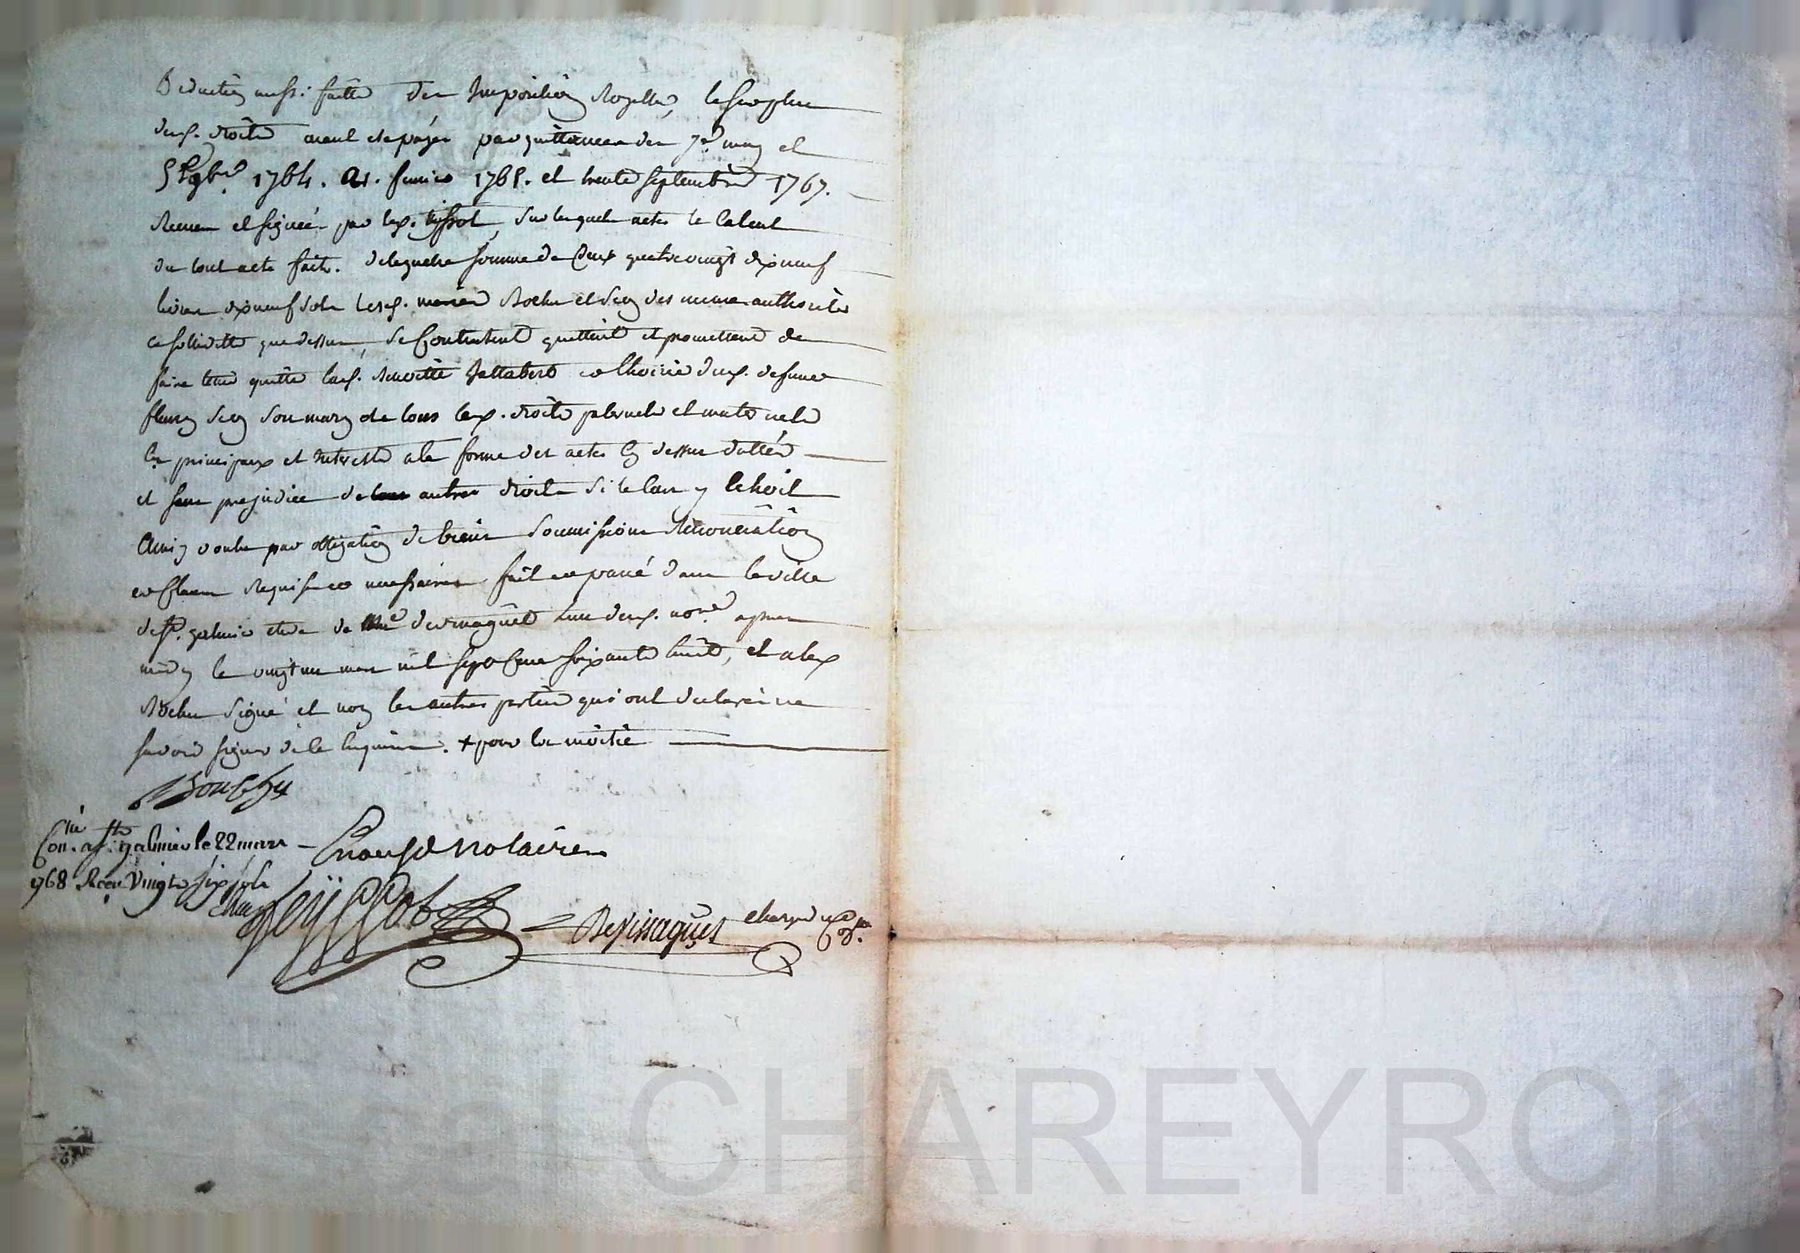 Deduction aussi faitte des Impositions Royalles, le surplus
desd. droits ayant été payés par quittances des 7e. may et
5e 9bre. 1764. 21. Janvier 1765. et trente septembre 1767.
Receues et signées par led. Peyssot, sur lesquels actes le Calcul
du tout a été fait. de laquelle somme de Cent quatrevingt dixneuf
livres dixneuf sols lesd. mariés Roche et Seon des mesmes authorités
et sollidité que dessus, se Contentent quittent et promettent de
faire tenir quitte lad. Benoitte Jallabert et l'hoirie dud. defunt
fleury Seon son mary de tous lesd. droits paternels et maternels
en principaux et interests a la forme des actes cy dessus dattés
et sans prejudice de autres droits si le cas y Echoit
Ainsy voulu par obligation de biens soumissions Renonciations
et Clauses requises et necessaires fait et passé dans la ville
de St. galmier etude de Me un desd. nores. apres
midy le vingt un mars mil sept Cent soixante huit, et a led.
Roche signé et non les autres parties qui ont declaré ne
savoir signer de ce Enquis. + pour la moitié
Con. a St. galmier le 22 mars
1768 Reçu Vingt six sols
notaire
Peyssot
CHAREYRON